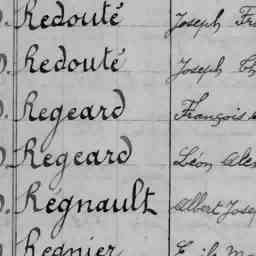 Redouté Joseph
Redouté Joseph
Regeard François
Regeard Léon
Régnault Albert
Regnier